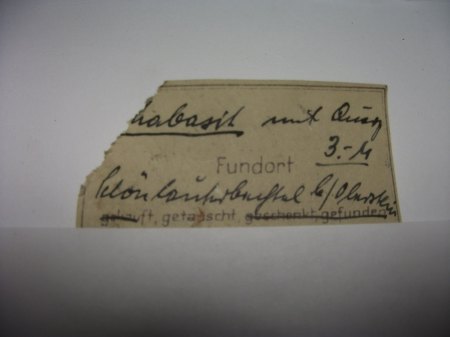 habasit mit Quarz
3.-M
Fundort
b/Oberstein
gekauft, getauscht, geschenkt, gefunden